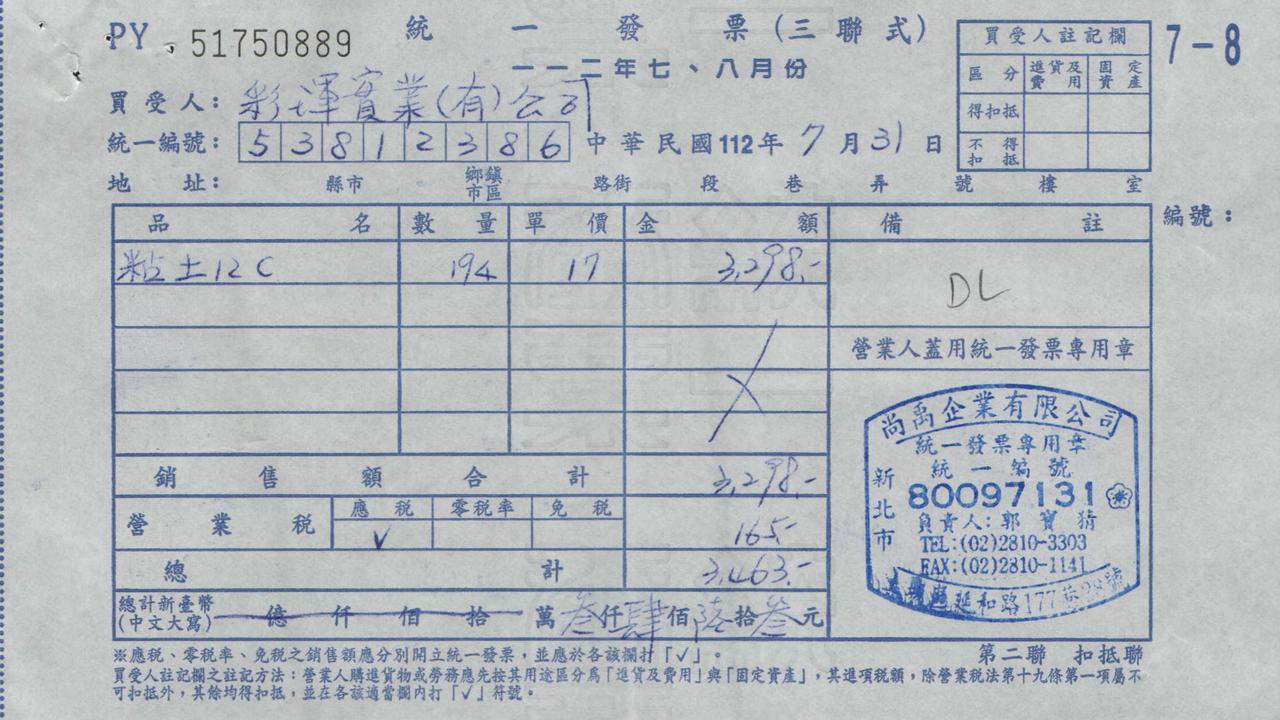 PY 51750889 統一發票(三聯式)
一一二年七、八月份
買受人註記欄
區分 進貨及費用 固定資產
得扣抵
不得扣抵
7-8
買受人: 彩琿實業(有)公司
統一編號: 53812386 中華民國112年7月31日
地址: 縣市 鄉鎮市區 路街 段 巷 弄 號 樓 室
編號:
品名 數量 單價 金額 備註
粘土12C 194 17 3,298.-
DL
營業人蓋用統一發票專用章
銷售額合計 3,298.-
營業稅 應稅 零稅率 免稅
√ 165.-
總計 3,463.-
總計新臺幣(中文大寫) 億仟佰拾萬叁仟肆佰陸拾叁元
尚禹企業有限公司
統一發票專用章
統一編號
新北市
80097131
負責人:郭寶猜
TEL:(02)2810-3303
FAX:(02)2810-1141
延和路177巷28號
※應稅、零稅率、免稅之銷售額應分別開立統一發票,並應於各該欄打「√」。
第二聯 扣抵聯
買受人註記欄之註記方法:營業人購進貨物或勞務應先按其用途區分為「進貨及費用」與「固定資產」,其進項稅額,除營業稅法第十九條第一項屬不
可扣抵外,其餘均得扣抵,並在各該適當欄內打「√」符號。